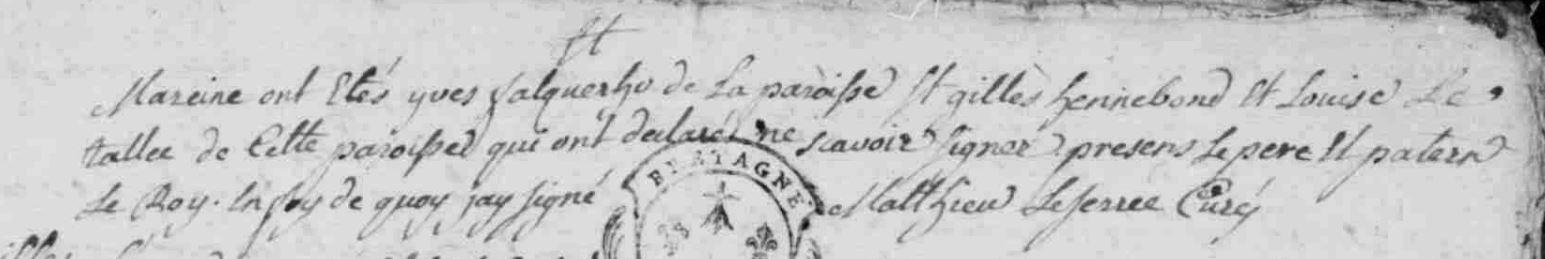 et
Mareine ont Etés yves falquerho de La paroisse St gilles hennebond Et Louise Le
tallec de Cette paroisse qui ont declaré ne scavoir signer presens Le pere Et patern
Le Roy. En foy de quoy jay signé Matthieu Leserrec Curé
BRETAGNE